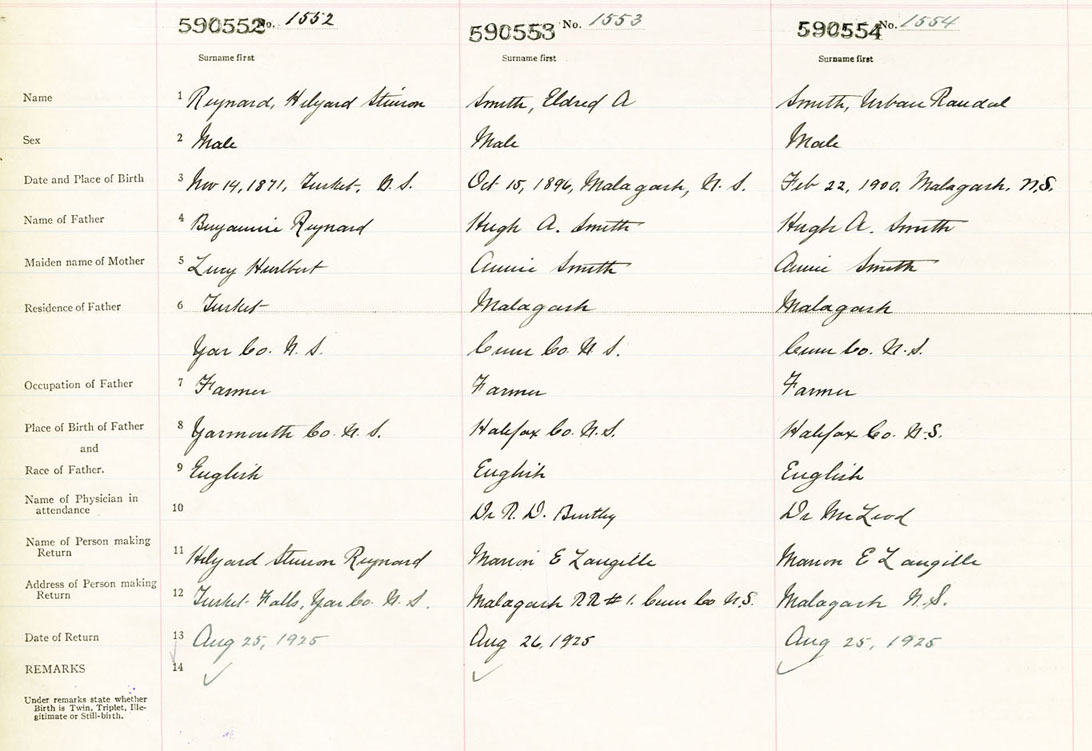 590552 No. 1552 590553 No. 1553 590554 No. 1554
Surname first Surname first Surname first
Name 1 Reynard, Hilyard Stinson Smith, Eldred A Smith, Urban Randal
Sex 2 Male Male Male
Date and Place of Birth 3 Nov 14, 1871, Tusket, N. S. Oct 15, 1896, Malagash, N. S. Feb 22, 1900, Malagash. N.S.
Name of Father 4 Benjamin Reynard Hugh A. Smith Hugh A. Smith
Maiden name of Mother 5 Lucy Hurlbert Annie Smith Annie Smith
Residence of Father 6 Tusket Malagash Malagash
Yar Co. N. S. Cum Co. N S. Cum Co. N.S.
Occupation of Father 7 Farmer Farmer Farmer
Place of Birth of Father 8 Yarmouth Co. N. S. Halifax Co. N.S. Halifax Co. N.S.
and
Race of Father. 9 English English English
Name of Physician in
attendance 10 Dr R. D. Bentley Dr McLeod
Name of Person making
Return 11 Hilyard Stinson Reynard Marion E Langille Marion E Langille
Address of Person making
Return 12 Tusket Falls, Yar Co. N. S. Malagash RR # 1. Cum Co N.S. Malagash N.S.
Date of Return 13 Aug 25, 1925 Aug 26, 1925 Aug 25, 1925
REMARKS 14
Under remarks state whether
Birth is Twin, Triplet, Ille-
gitimate or Still-birth.